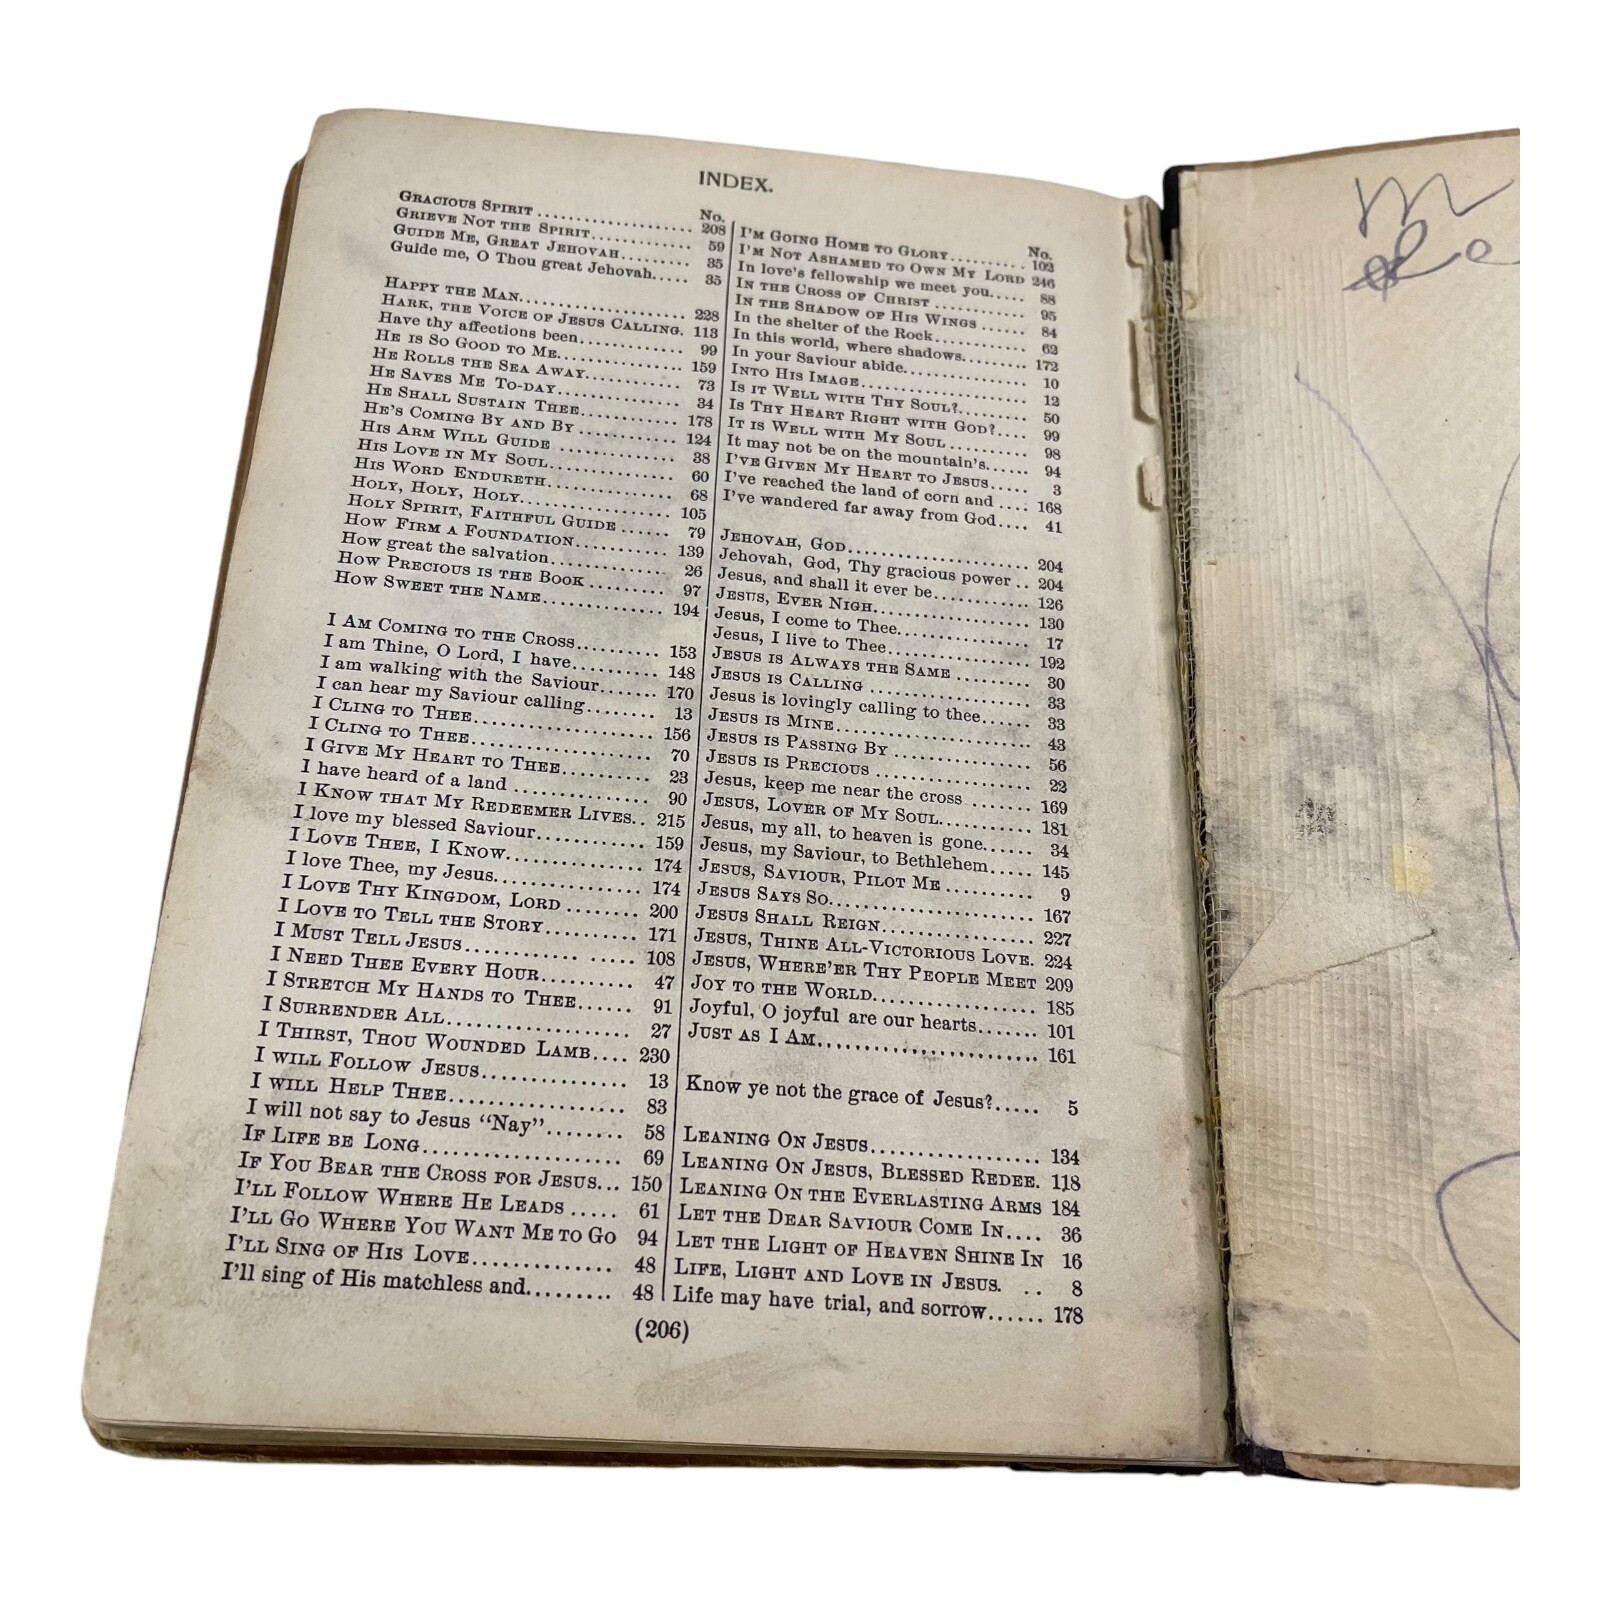 INDEX.
No.
GRACIOUS SPIRIT .................... 208
GRIEVE NOT THE SPIRIT............. 59
GUIDE ME, GREAT JEHOVAH......... 35
Guide me, O Thou great Jehovah..... 35
HAPPY THE MAN..................... 228
HARK, THE VOICE OF JESUS CALLING. 113
Have thy affections been............. 99
HE IS SO GOOD TO ME.............. 159
HE ROLLS THE SEA AWAY............ 73
HE SAVES ME TO-DAY............... 34
HE SHALL SUSTAIN THEE............ 178
HE'S COMING BY AND BY ............ 124
HIS ARM WILL GUIDE ............... 38
HIS LOVE IN MY SOUL............... 60
HIS WORD ENDURETH............... 68
HOLY, HOLY, HOLY.................. 105
HOLY SPIRIT, FAITHFUL GUIDE ...... 79
HOW FIRM A FOUNDATION........... 139
How great the salvation.............. 26
HOW PRECIOUS IS THE BOOK ......... 97
HOW SWEET THE NAME.............. 194
I AM COMING TO THE CROSS.......... 153
I am Thine, O Lord, I have.......... 148
I am walking with the Saviour....... 170
I can hear my Saviour calling........ 13
I CLING TO THEE.................... 156
I CLING TO THEE.................... 70
I GIVE MY HEART TO THEE.......... 23
I have heard of a land ............... 90
I KNOW THAT MY REDEEMER LIVES.. 215
I love my blessed Saviour............ 159
I LOVE THEE, I KNOW............... 174
I love Thee, my Jesus................ 174
I LOVE THY KINGDOM, LORD ........ 200
I LOVE TO TELL THE STORY.......... 171
I MUST TELL JESUS........... ..... 108
I NEED THEE EVERY HOUR.......... 47
I STRETCH MY HANDS TO THEE...... 91
I SURRENDER ALL................... 27
I THIRST, THOU WOUNDED LAMB.... 230
I WILL FOLLOW JESUS............... 13
I WILL HELP THEE.................. 83
I will not say to Jesus “Nay”........ 58
IF LIFE BE LONG.................... 69
IF YOU BEAR THE CROSS FOR JESUS... 150
I'LL FOLLOW WHERE HE LEADS ..... 61
I'LL GO WHERE YOU WANT ME TO GO 94
I'LL SING OF HIS LOVE.............. 48
I'll sing of His matchless and......... 48
No.
I'M GOING HOME TO GLORY.......... 102
I'M NOT ASHAMED TO OWN MY LORD 246
In love's fellowship we meet you..... 88
IN THE CROSS OF CHRIST ............ 95
IN THE SHADOW OF HIS WINGS ...... 84
In the shelter of the Rock............ 62
In this world, where shadows........ 172
In your Saviour abide................ 10
INTO HIS IMAGE.................... 12
IS IT WELL WITH THY SOUL?......... 50
IS THY HEART RIGHT WITH GOD?.... 99
IT IS WELL WITH MY SOUL .......... 98
It may not be on the mountain's...... 94
I'VE GIVEN MY HEART TO JESUS..... 3
I've reached the land of corn and .... 168
I've wandered far away from God.... 41
JEHOVAH, GOD...................... 204
Jehovah, God, Thy gracious power .. 204
Jesus, and shall it ever be............ 126
JESUS, EVER NIGH................... 130
Jesus, I come to Thee................ 17
Jesus, I live to Thee.................. 192
JESUS IS ALWAYS THE SAME ......... 30
JESUS IS CALLING ................... 33
Jesus is lovingly calling to thee...... 33
JESUS IS MINE....................... 43
JESUS IS PASSING BY ................ 56
JESUS IS PRECIOUS .................. 22
Jesus, keep me near the cross ....... 169
JESUS, LOVER OF MY SOUL........... 181
Jesus, my all, to heaven is gone...... 34
Jesus, my Saviour, to Bethlehem..... 145
JESUS, SAVIOUR, PILOT ME .......... 9
JESUS SAYS SO....................... 167
JESUS SHALL REIGN................. 227
JESUS, THINE ALL-VICTORIOUS LOVE. 224
JESUS, WHERE'ER THY PEOPLE MEET 209
JOY TO THE WORLD.................. 185
Joyful, O joyful are our hearts....... 101
JUST AS I AM........................ 161
Know ye not the grace of Jesus?..... 5
LEANING ON JESUS.................. 134
LEANING ON JESUS, BLESSED REDEE. 118
LEANING ON THE EVERLASTING ARMS 184
LET THE DEAR SAVIOUR COME IN.... 36
LET THE LIGHT OF HEAVEN SHINE IN 16
LIFE, LIGHT AND LOVE IN JESUS. .. 8
Life may have trial, and sorrow...... 178
(206)